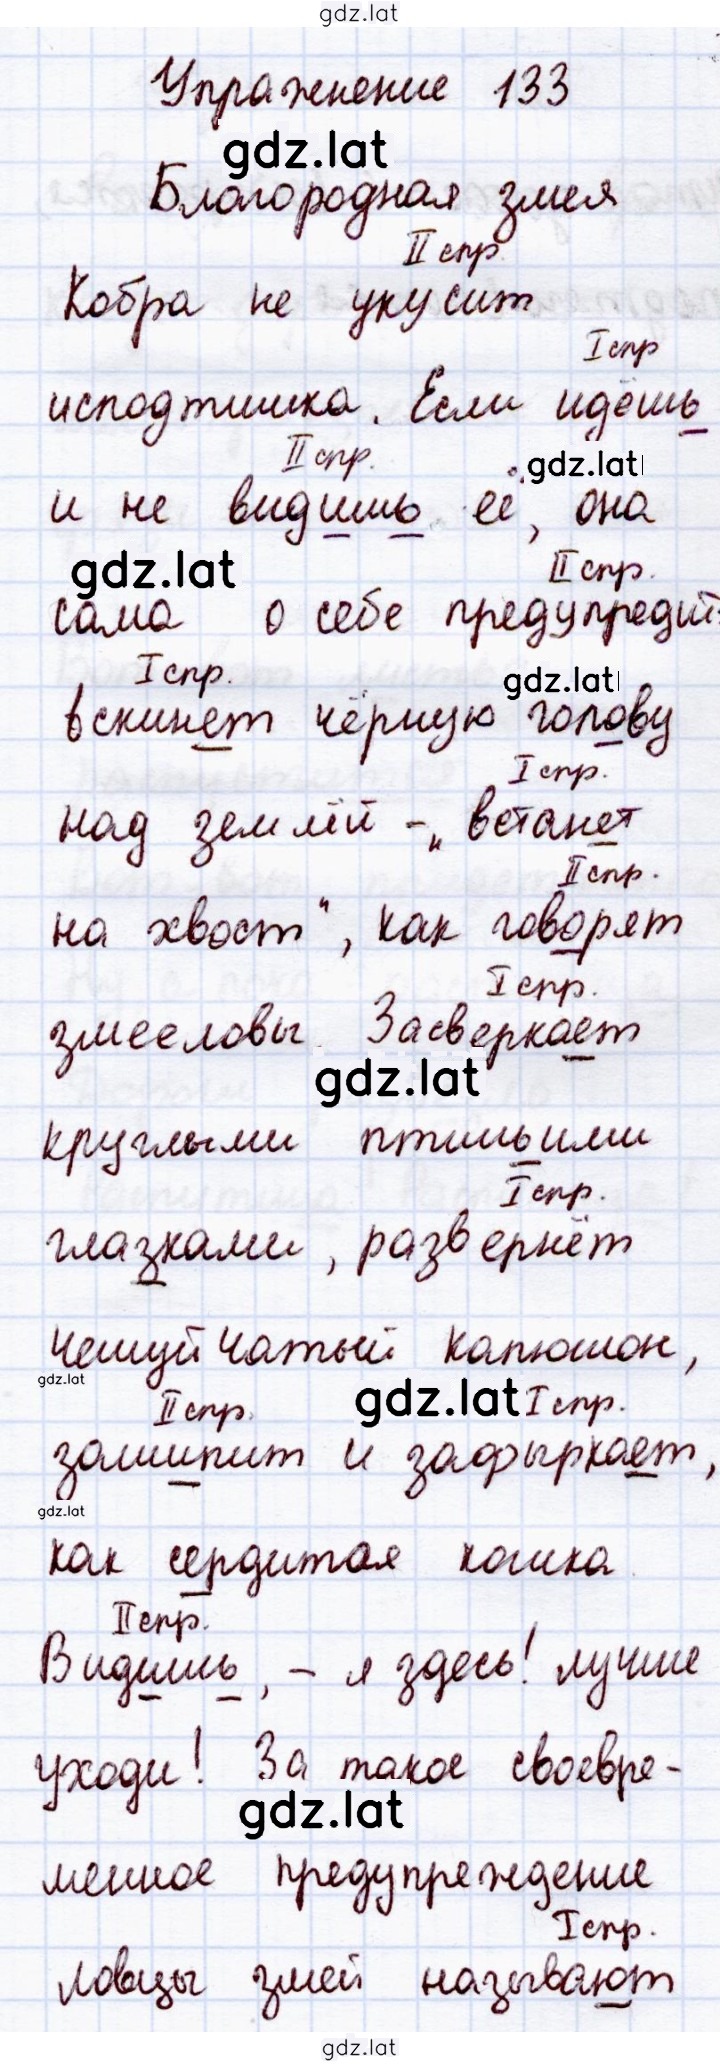 gdz.lat
Упражнение 133
gdz.lat
Благородная змея
II спр.
Кобра не укусит
I спр
исподтишка. Если идёшь
II спр.
gdz.lat
и не видишь её, она
gdz.lat
II спр.
сама о себе предупредит:
I спр.
gdz.lat
вскинет чёрную голову
I спр.
над землёй – „встанет
II спр.
на хвост“, как говорят
I спр.
змееловы. Засверкает
gdz.lat
круглыми птичьими
I спр.
глазками, развернёт
чешуйчатый капюшон,
gdz.lat
II спр.
gdz.lat
I спр.
зашипит и зафыркает,
gdz.lat
как сердитая кошка
II спр.
Видишь, – я здесь! лучше
уходи! За такое своевре-
gdz.lat
менное предупреждение
I спр.
ловцы змей называют
gdz.lat